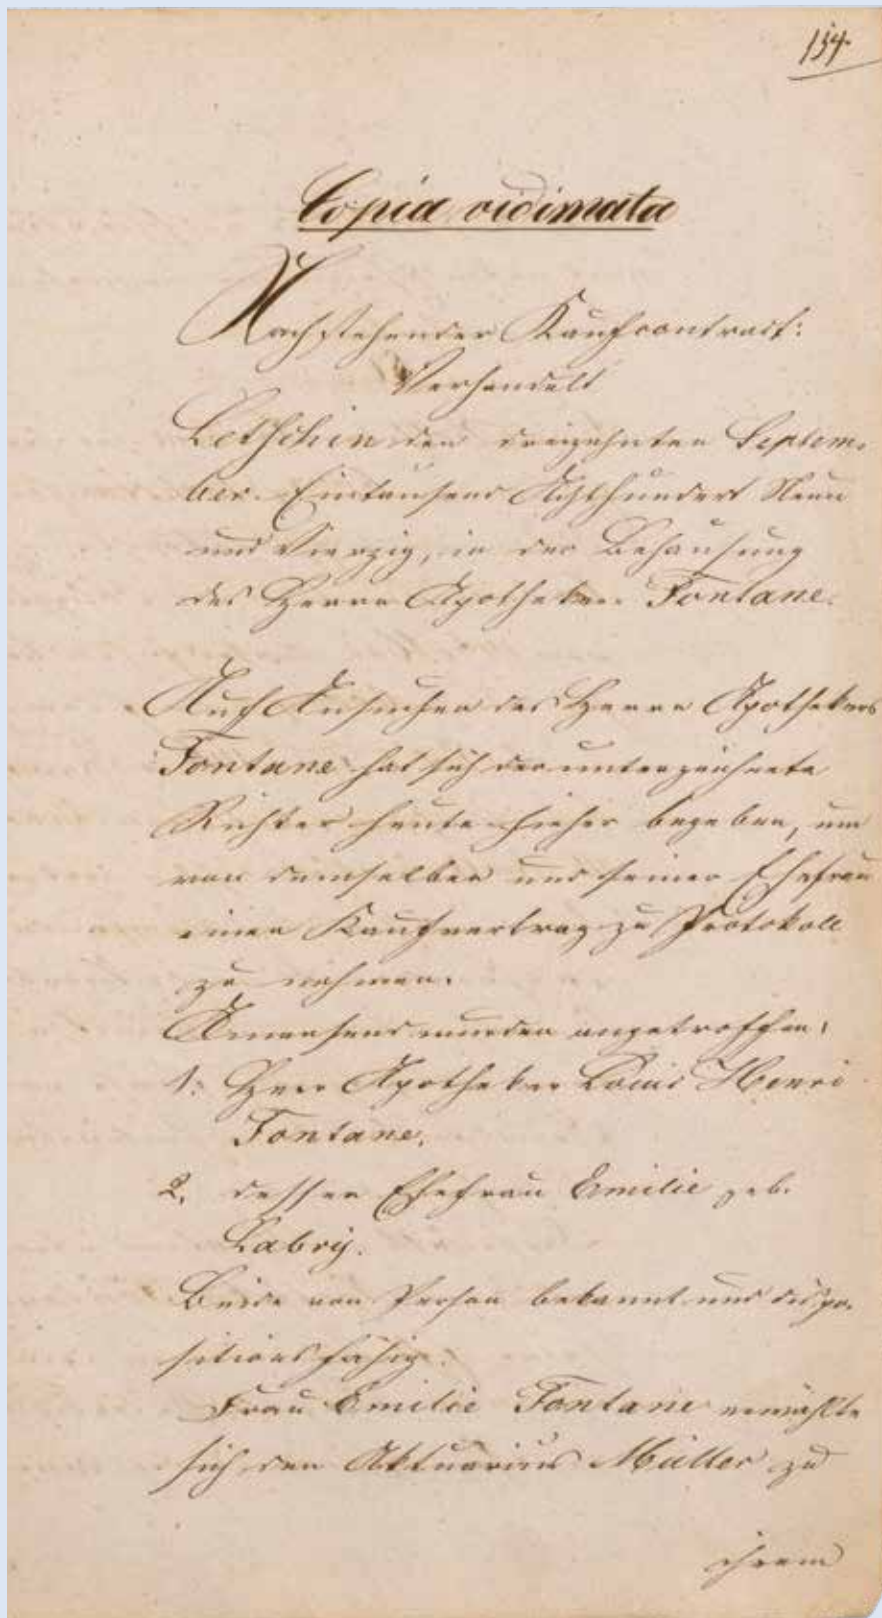 154.
Copia vidimata
Nachstehender Kaufcontract:
Verhandelt
Letschin den dreizehnten Septem-
ber Eintausend Achthundert Neun
und Vierzig, in der Behausung
des Herrn Apotheker Fontane.
Auf Ansuchen des Herrn Apothekers
Fontane hat sich der unterzeichnete
Richter heute hieher begeben, um
von demselben und seiner Ehefrau
einen Kaufvertrag zu Protokoll
zu nehmen.
Anwesend wurden angetroffen:
1. Herr Apotheker Louis Henri
Fontane.
2. dessen Ehefrau Emilie geb.
Labry.
Beide von Person bekannt und dispo-
sitionsfähig.
Frau Emilie Fontane erwählte
sich den Aktuarius Müller zu
ihrem